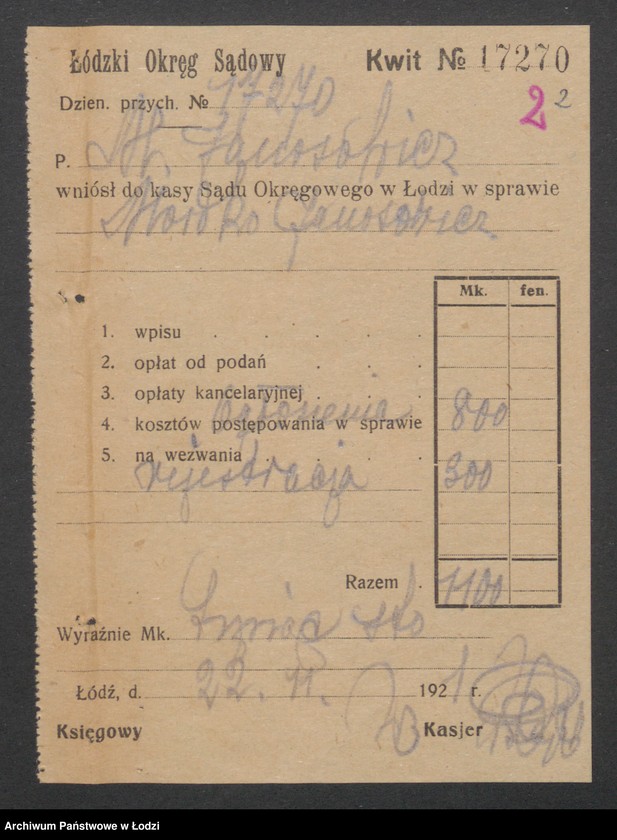 Łódzki Okręg Sądowy Kwit № 17270
Dzien. przych. № 17270
2 2
P. M. Janosowicz
wniósł do kasy Sądu Okręgowego w Łodzi w sprawie
Janosowicz
Mk. fen.
1. wpisu . . . .
2. opłat od podań . . .
3. opłaty kancelaryjnej . . .
ogłoszenia
4. kosztów postępowania w sprawie 800
5. na wezwania . . . .
rejestracja 300
Razem . 1100
Wyraźnie Mk. tysiąc sto
Łódź, d. 22. 1921 r.
Księgowy Kasjer
Archiwum Państwowe w Łodzi